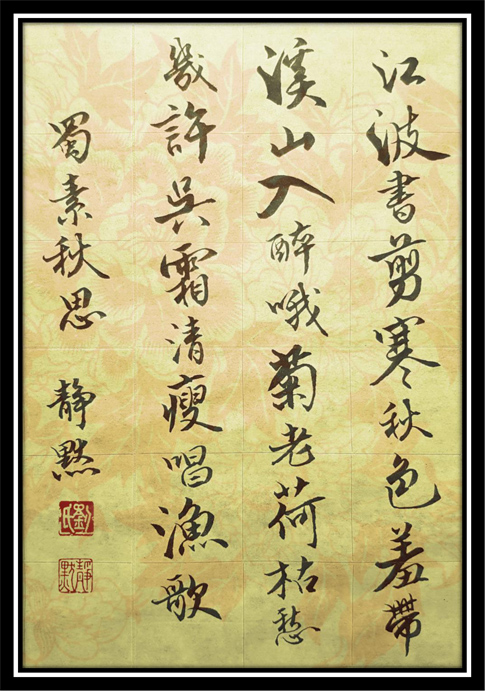 江波書剪寒秋色羞帶
溪山入醉哦菊老荷枯愁
幾許吳霜清瘦唱漁歌
蜀素秋思 靜默
劉氏
靜默